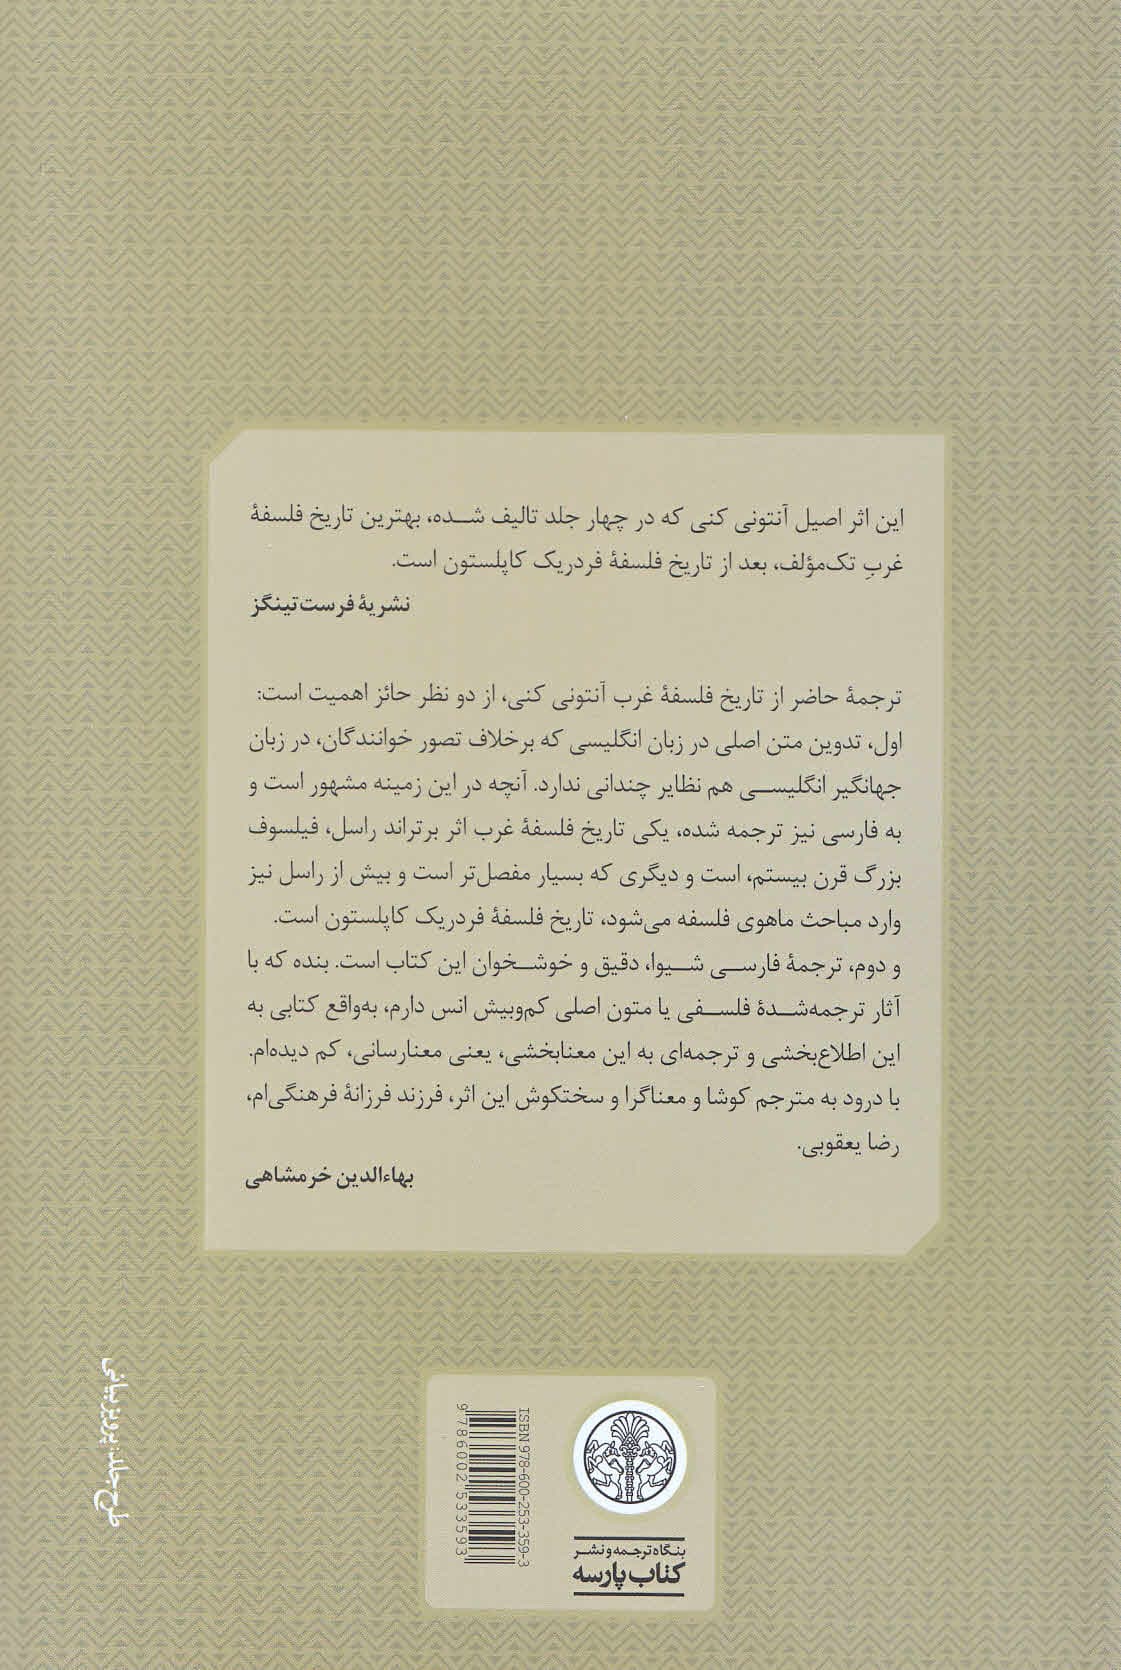 این اثر اصیل آنتونی کنی که در چهار جلد تالیف شده، بهترین تاریخ فلسفهٔ
غربِ تک‌مؤلف، بعد از تاریخ فلسفهٔ فردریک کاپلستون است.
نشریهٔ فرست تینگز
ترجمهٔ حاضر از تاریخ فلسفهٔ غرب آنتونی کنی، از دو نظر حائز اهمیت است:
اول، تدوین متن اصلی در زبان انگلیسی که برخلاف تصور خوانندگان، در زبان
جهانگیر انگلیسی هم نظایر چندانی ندارد. آنچه در این زمینه مشهور است و
به فارسی نیز ترجمه شده، یکی تاریخ فلسفهٔ غرب اثر برتراند راسل، فیلسوف
بزرگ قرن بیستم، است و دیگری که بسیار مفصل‌تر است و بیش از راسل نیز
وارد مباحث ماهوی فلسفه می‌شود، تاریخ فلسفهٔ فردریک کاپلستون است.
و دوم، ترجمهٔ فارسی شیوا، دقیق و خوشخوان این کتاب است. بنده که با
آثار ترجمه‌شدهٔ فلسفی یا متون اصلی کم‌وبیش انس دارم، به‌واقع کتابی به
این اطلاع‌بخشی و ترجمه‌ای به این معنابخشی، یعنی معنارسانی، کم دیده‌ام.
با درود به مترجم کوشا و معناگرا و سختکوش این اثر، فرزند فرزانهٔ فرهنگی‌ام،
رضا یعقوبی.
بهاءالدین خرمشاهی
طرح جلد: پرویز بیانی
ISBN 978-600-253-359-3
9 786002 533593
بنگاه ترجمه و نشر
کتاب پارسه